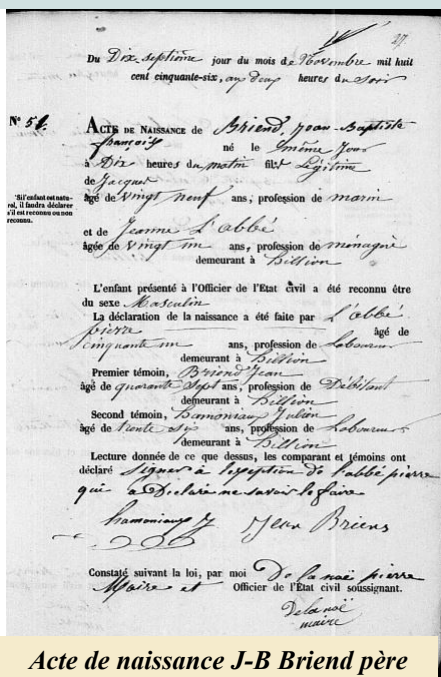 27
Du Dix septième jour du mois de Novembre mil huit
cent cinquante-six, aux deux heures du Soir
N° 51.
ACTE DE NAISSANCE de Briend, Jean Baptiste
françois né le même Jour
à Dix heures du matin fils Légitime
de Jacques
âgé de vingt neuf ans, profession de marin
'Si l'enfant est natu-
rel, il faudra déclarer
s'il est reconnu ou non
reconnu.
et de Jeanne L'abbé
âgée de vingt un ans, profession de ménagère
demeurant à hillion
L'enfant présenté à l'Officier de l'Etat civil a été reconnu être
du sexe Masculin
La déclaration de la naissance a été faite par L'abbé
pierre âgé de
cinquante un ans, profession de Laboureur
demeurant à hillion
Premier témoin, Briend Jean
âgé de quarante Sept ans, profession de Débitant
demeurant à hillion
Second témoin, hamoniaux Julien
âgé de trente six ans, profession de Laboureur
demeurant à hillion
Lecture donnée de ce que dessus, les comparant et témoins ont
déclaré signer à lexeption de l'abbé pierre
qui a Déclaré ne savoir le faire
hamoniaux J Jean Briens
Constaté suivant la loi, par moi De la noë pierre
Maire et Officier de l'Etat civil soussignant.
Delanoë
maire
Acte de naissance J-B Briend père